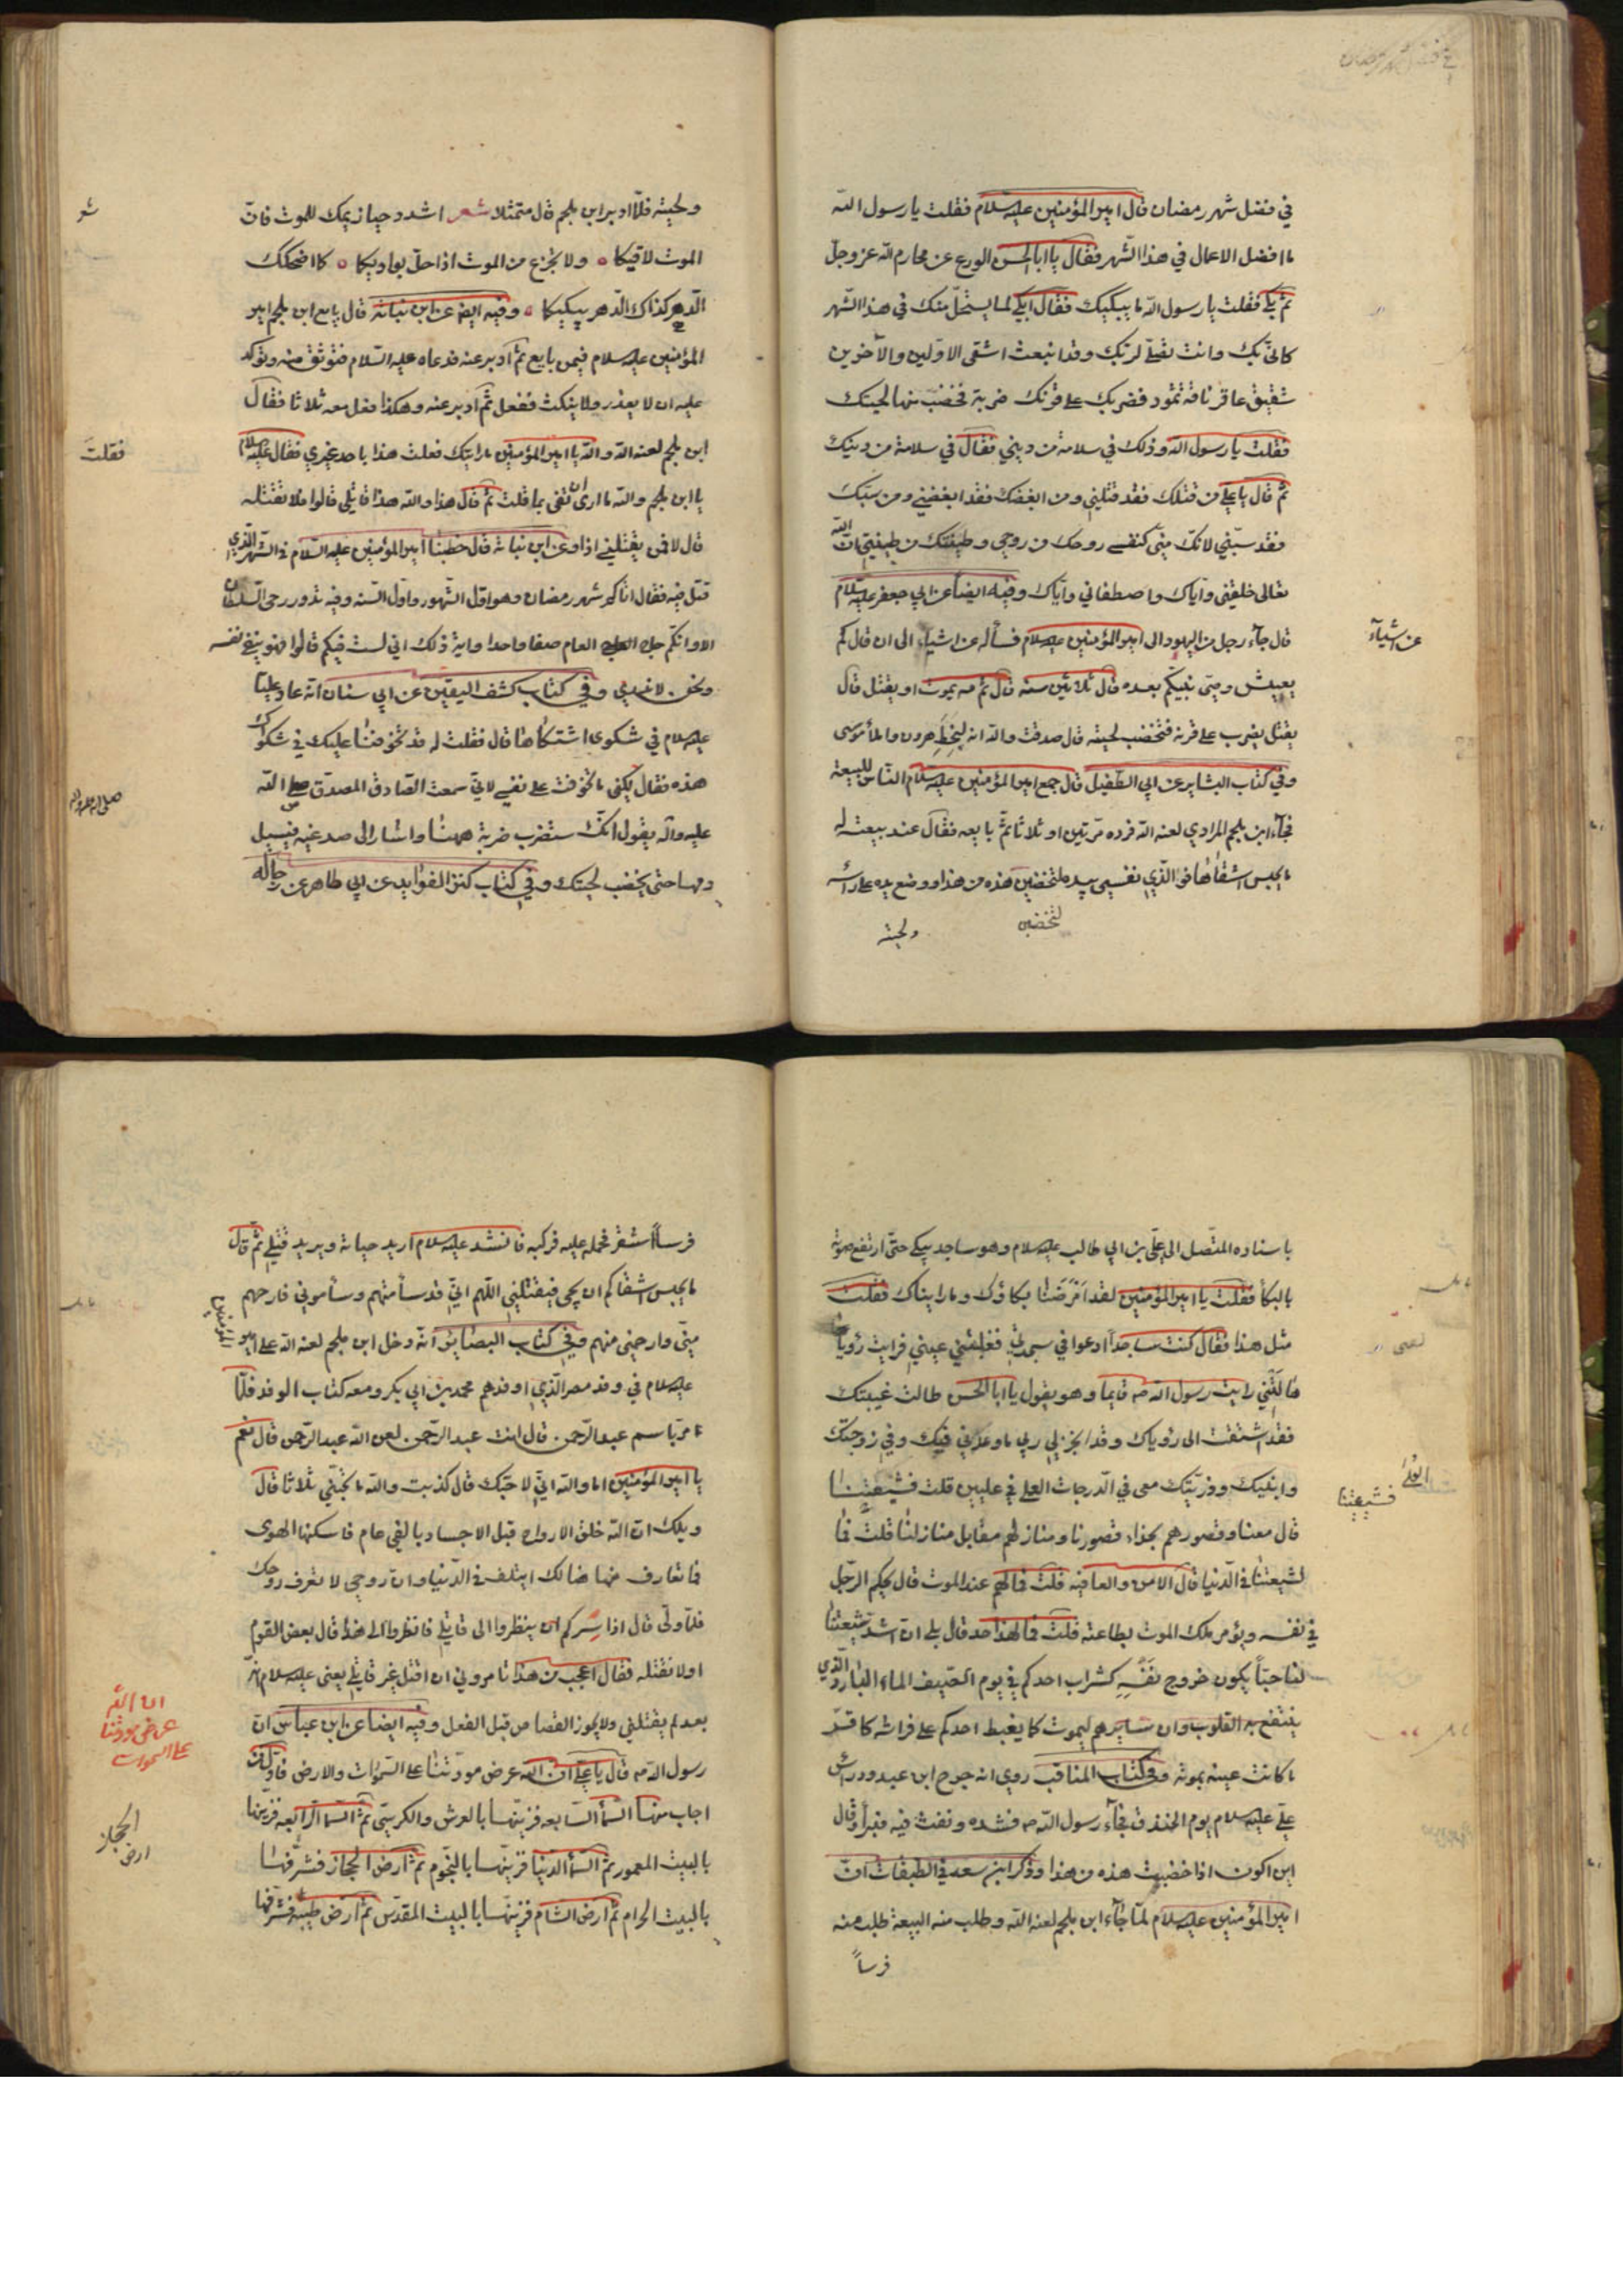 في فضل شهر رمضان قال امير المؤمنين عليه السلام فقلت يا رسول الله
ما افضل الاعمال في هذا الشهر فقال يا ابا الحسن الورع عن محارم الله عز وجل
ثم بكى فقلت يا رسول الله ما يبكيك فقال ابكي لما يستحل منك في هذا الشهر
كاني بك وانت تصلي لربك وقد انبعث اشقى الاولين والآخرين
شقيق عاقر ناقة ثمود فضربك على قرنك ضربة فخضب منها لحيتك
فقلت يا رسول الله وذلك في سلامة من ديني فقال في سلامة من دينك
ثم قال يا علي من قتلك فقد قتلني ومن ابغضك فقد ابغضني ومن سبك
فقد سبني لانك مني كنفسي روحك من روحي وطينتك من طينتي ان الله
تعالى خلقني واياك واصطفاني واياك وفيه ايضا عن ابي جعفر عليه السلام
قال جاء رجل من اليهود الى امير المؤمنين عليه السلام فسأله عن اشياء الى ان قال كم
عن اشياء
يعيش وصي نبيكم بعده قال ثلاثين سنة قال ثم مه يموت او يقتل قال
يقتل يضرب على قرنه فتخضب لحيته قال صدقت والله انه لبخط هرون واملأ موسى
وفي كتاب البشاير عن ابي الطفيل قال جمع امير المؤمنين عليه السلام الناس للبيعة
فجاء ابن ملجم المرادي لعنه الله فرده مرتين او ثلاثا ثم بايعه فقال عند بيعته له
ما يحبس اشقاها فو الذي نفسي بيده لتخضبن هذه من هذا ووضع يده على رأسه
لتخضبن
ولحيته
ولحيته فلما ادبر ابن ملجم قال متمثلا شعر اشدد حيازيمك للموت فان
شعر
الموت لاقيكا ولا تجزع من الموت اذا حل بواديكا كما اضحكك
الدهر كذاك الدهر يبكيكا وفيه ايضا عن ابن نباته قال بايع ابن ملجم امير
المؤمنين عليه السلام فيمن بايع ثم ادبر عنه فدعاه عليه السلام فتوثق منه وتوكد
عليه ان لا يغدر ولا ينكث ففعل ثم ادبر عنه وهكذا فعل معه ثلاثا فقال
ابن ملجم لعنه الله والله يا امير المؤمنين ما رايتك فعلت هذا باحد غيري فقال عليه السلام
فقلت
يا ابن ملجم والله ما ارى ان تفى بما قلت ثم قال هذا والله هذا قاتلي قالوا فلا تقتله
قال لا فمن يقتلني اذا وعن ابن نباته قال خطبنا امير المؤمنين عليه السلام في الشهر الذي
قتل فيه فقال اتاكم شهر رمضان وهو اول الشهور واول السنة وفيه تدور رحى السلطان
الا وانكم حاج العام صفا واحدا واية ذلك اني لست فيكم قالوا فهو ينعى نفسه
ونحن لا ندري وفي كتاب كشف اليقين عن ابي سنان انه عاد عليا
عليه السلام في شكوى اشتكاها قال فقلت له قد تخوفنا عليك في شكواك
هذه فقال لكني ما تخوفت على نفسي لاني سمعت الصادق المصدق صلى الله
صلى الله عليه واله
عليه واله يقول انك ستضرب ضربة ههنا واشار الى صدغيه فيسيل
دمها حتى يخضب لحيتك وفي كتاب كنز الفوايد عن ابي طاهر عن رجاله
باسناده المتصل الى علي بن ابي طالب عليه السلام وهو ساجد يبكي حتى ارتفع صوته
بالبكا فقلت يا امير المؤمنين لقد امرضنا بكاؤك وما رايناك فعلت
مثل هذا فقال كنت ساجدا ادعوا في سجدتي فغلبتني عيني فرايت رؤيا
هالتني رايت رسول الله ص قايما وهو يقول يا ابا الحسن طالت غيبتك
فقد اشتقت الى رؤياك وقد انجز لي ربي ما وعدني فيك وفي زوجتك
وابنيك وذريتك معى في الدرجات العلى في عليين قلت فشيعتنا
العلى
فشيعتنا
قال معنا وقصورهم بحذاء قصورنا ومنازلهم مقابل منازلنا قلت فما
لشيعتنا في الدنيا قال الامن والعافية قلت فما لهم عند الموت قال يحكم الرجل
في نفسه ويؤمر ملك الموت بطاعته قلت فما لهذا حد قال بلى ان اشد شيعتنا
لنا حبا يكون خروج نفسه كشراب احدكم في يوم الصيف الماء البارد الذي
ينتفع به القلوب وان سايرهم ليموت كما يغبط احدكم على فراشه كاقر
ما كانت عينه بموته وفي كتاب المناقب روي انه جرح ابن عبد ود راس
علي عليه السلام يوم الخندق فجاء رسول الله ص فشده ونفث فيه فبرأ وقال
اين اكون اذا خضبت هذه من هذا وذكر ابن سعد في الطبقات ان
امير المؤمنين عليه السلام لما جاء ابن ملجم لعنه الله وطلب منه البيعة طلب منه
فرساً
فرساً اشقر فحمله عليه فركبه فانشد عليه السلام اريد حياته ويريد قتلي ثم قال
ما يحبس اشقاكم ان يجى فيقتلني اللهم اني قد سأمتهم وسأموني فارحهم
مني وارحني منهم وفي كتاب البصائر انه دخل ابن ملجم لعنه الله على امير المؤمنين
عليه السلام في وفد مصر الذي اوفدهم محمد بن ابي بكر ومعه كتاب الوفد فلما
مر باسم عبد الرحمن قال انت عبد الرحمن لعن الله عبد الرحمن قال نعم
يا امير المؤمنين اما والله اني لاحبك قال كذبت والله ما تحبني ثلاثا قال
ويلك ان الله خلق الارواح قبل الاجساد بالفي عام فاسكنها الهوى
فما تعارف منها هنالك ايتلف في الدنيا وان روحي لا تعرف روحك
فلما ولى قال اذا سركم ان ينظروا الى قاتلي فانظروا الى هذا قال بعض القوم
اولا نقتله فقال اعجب من هذا تامروني ان اقتل غير قاتلي يعني عليه السلام انه
بعد لم يقتلني ولا يجوز القصاص قبل الفعل وفيه ايضا عن ابن عباس ان
رسول الله ص قال يا علي ان الله عرض مودتنا على السموات والارض فاول من
ان الله
عرض مودتنا
على السموات
اجاب منها السماء السابعة فزينها بالعرش والكرسي ثم السماء الرابعة فزينها
بالبيت المعمور ثم السماء الدنيا فزينها بالنجوم ثم ارض الحجاز فشرفها
الحجاز
ارض
بالبيت الحرام ثم ارض الشام فزينها بالبيت المقدس ثم ارض طيبة فشرفها